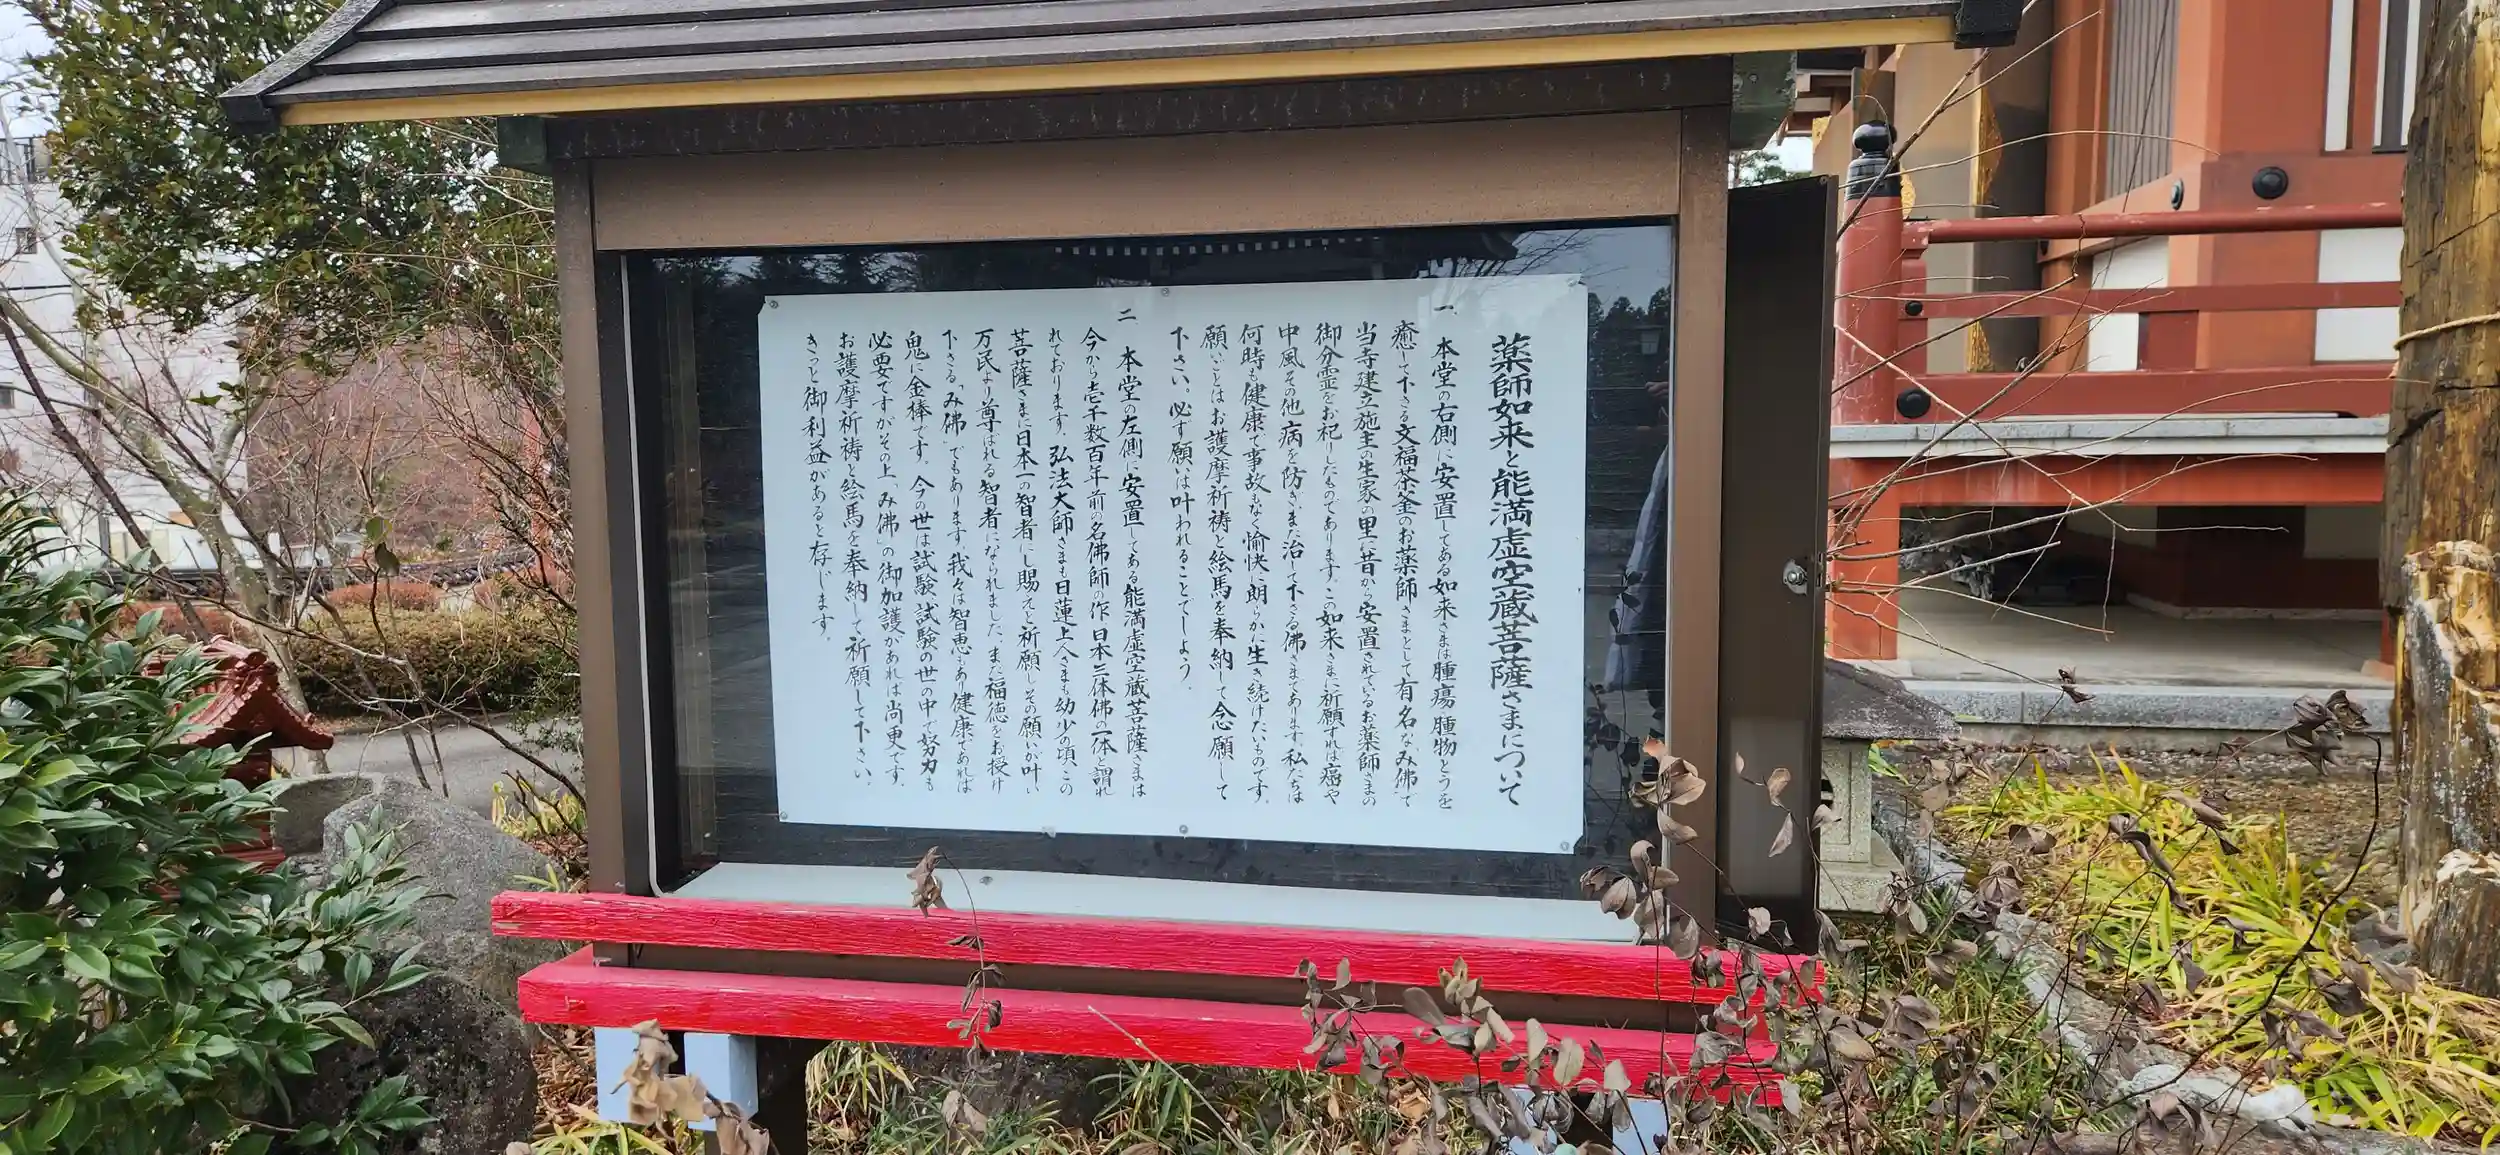 薬師如来と能満虚空蔵菩薩さまについて
一、本堂の右側に安置してある如来さまは腫瘍、腫物とうを
癒して下さる文福茶釜のお薬師さまとして有名なみ佛で
当寺建立施主の生家の里に昔から安置されているお薬師さまの
御分霊をお祀りしたものであります。この如来さまに祈願すれば癌や
中風その他病を防ぎ、また治して下さる佛さまであります。私たちは
何時も健康で事故もなく愉快に朗らかに生き続けたいものです。
願いごとはお護摩祈祷と絵馬を奉納して念願して
下さい。必ず願いは叶われることでしょう。
二、本堂の左側に安置してある能満虚空蔵菩薩さまは
今から壱千数百年前の名佛師の作、日本三体佛の一体と謂れ
れております。弘法大師さまも日蓮上人さまも幼少の頃、この
菩薩さまに日本一の智者にし賜えと祈願しその願いが叶い
万民より尊ばれる智者になられました、また福徳をお授け
下さる「み佛」でもあります。我々は智恵もあり健康であれば
鬼に金棒です。今の世は試験、試験の世の中で努力も
必要ですがその上「み佛」の御加護があれば尚更です。
お護摩祈祷と絵馬を奉納して祈願して下さい。
きっと御利益があると存じます。